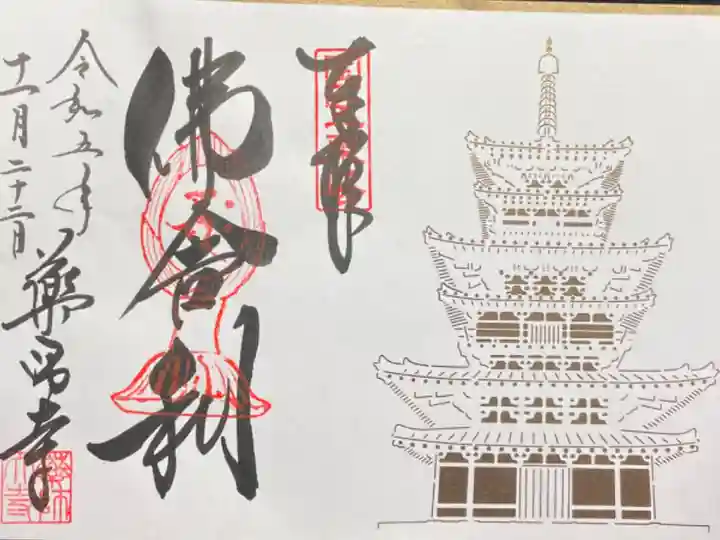 佛舎利
令和五年
十一月二十二日
薬師寺